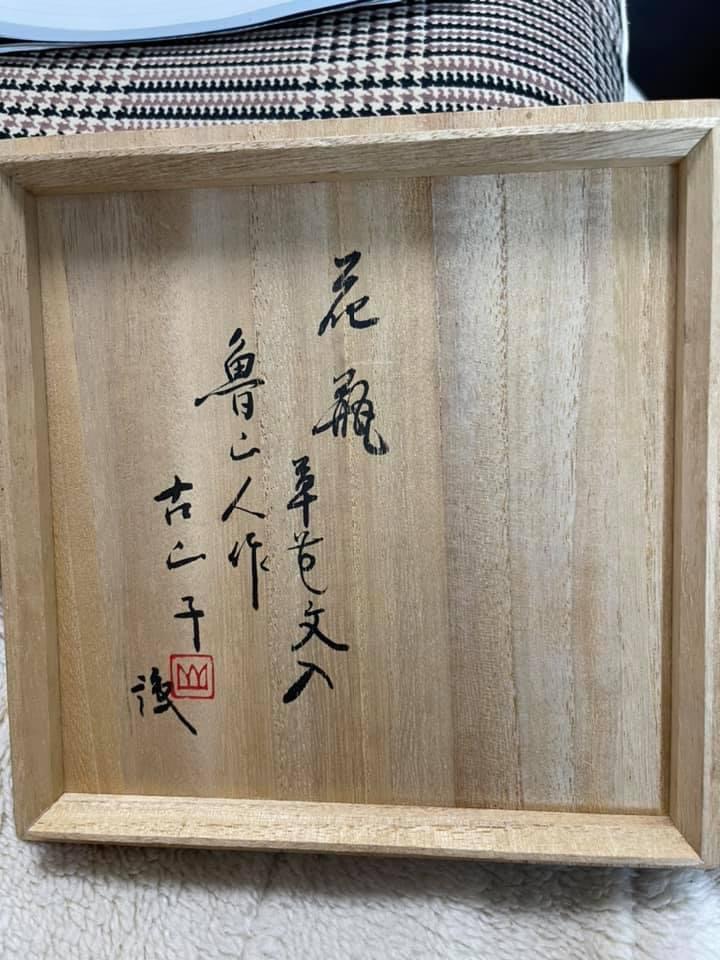 花瓶
草花文入
魯山人作
古山子